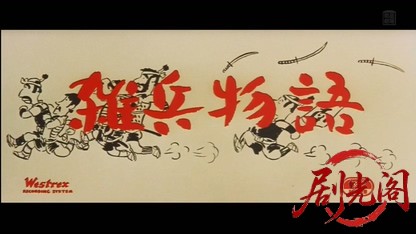 雑兵物語
Westrex
RECORDING SYSTEM
剧光阁